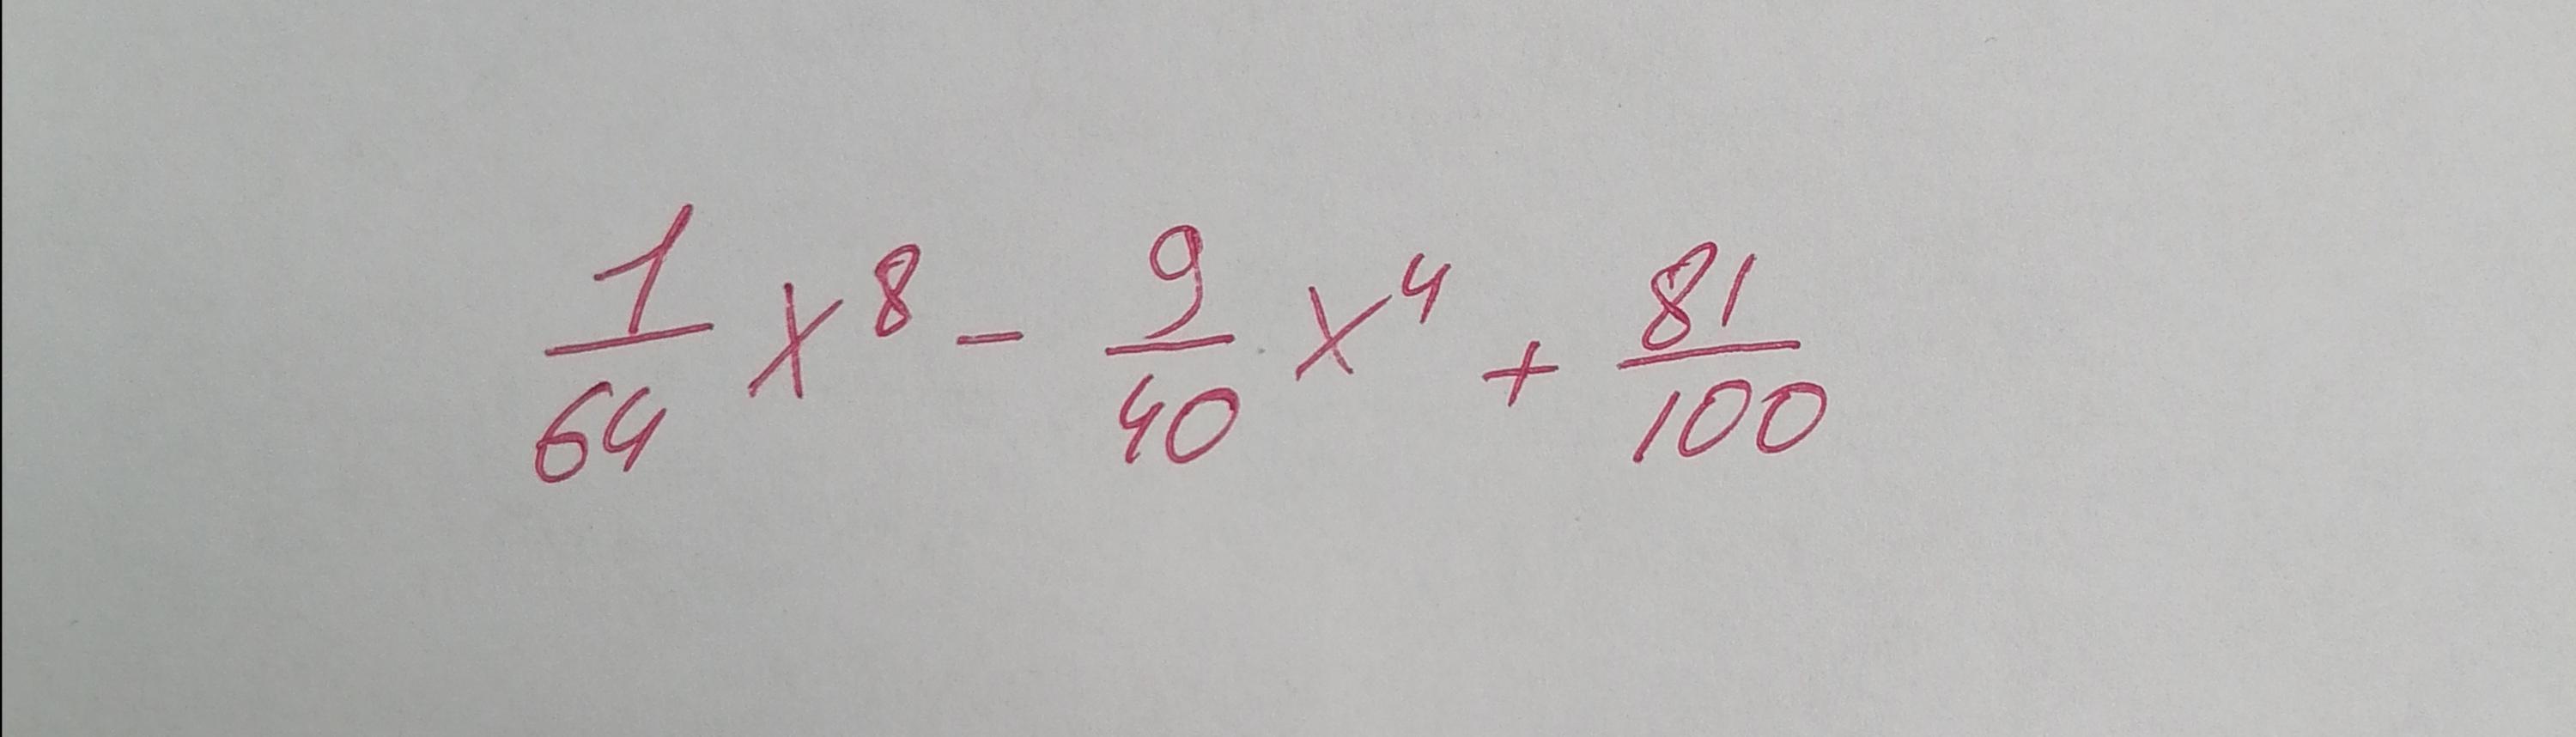 1/64 x⁸ - 9/40 x⁴ + 81/100